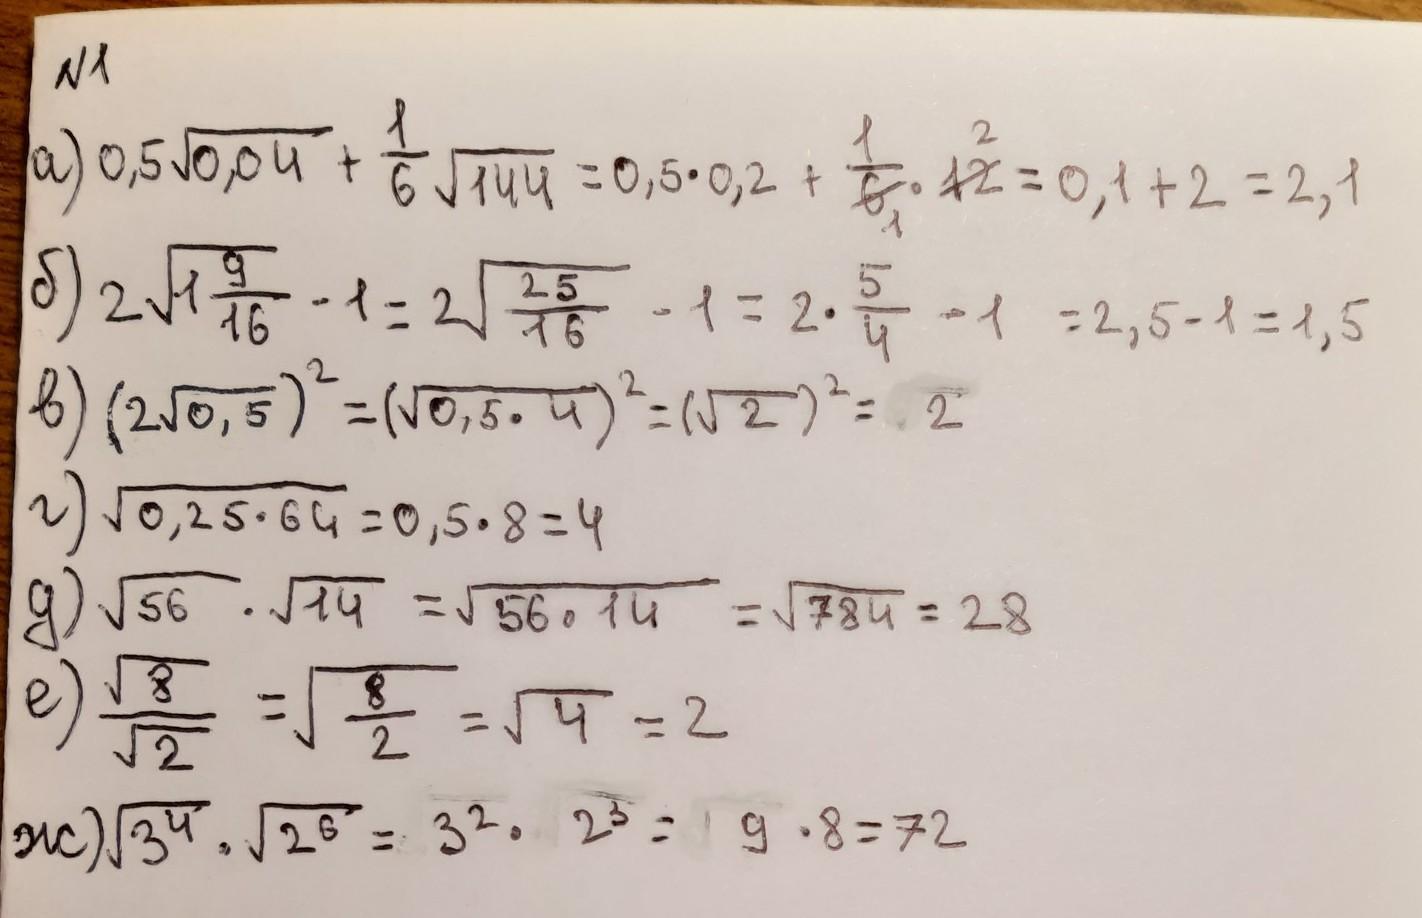 N1
а) 0,5√0,04 + 1/6 √144 = 0,5·0,2 + 1/6₁ · 12² = 0,1 + 2 = 2,1
б) 2√1 9/16 - 1 = 2√25/16 - 1 = 2 · 5/4 - 1 = 2,5 - 1 = 1,5
в) (2√0,5)² = (√0,5·4)² = (√2)² = 2
г) √0,25·64 = 0,5·8 = 4
д) √56 · √14 = √56·14 = √784 = 28
е) √8/√2 = √8/2 = √4 = 2
ж) √3⁴ · √2⁶ = 3² · 2³ = 9 · 8 = 72